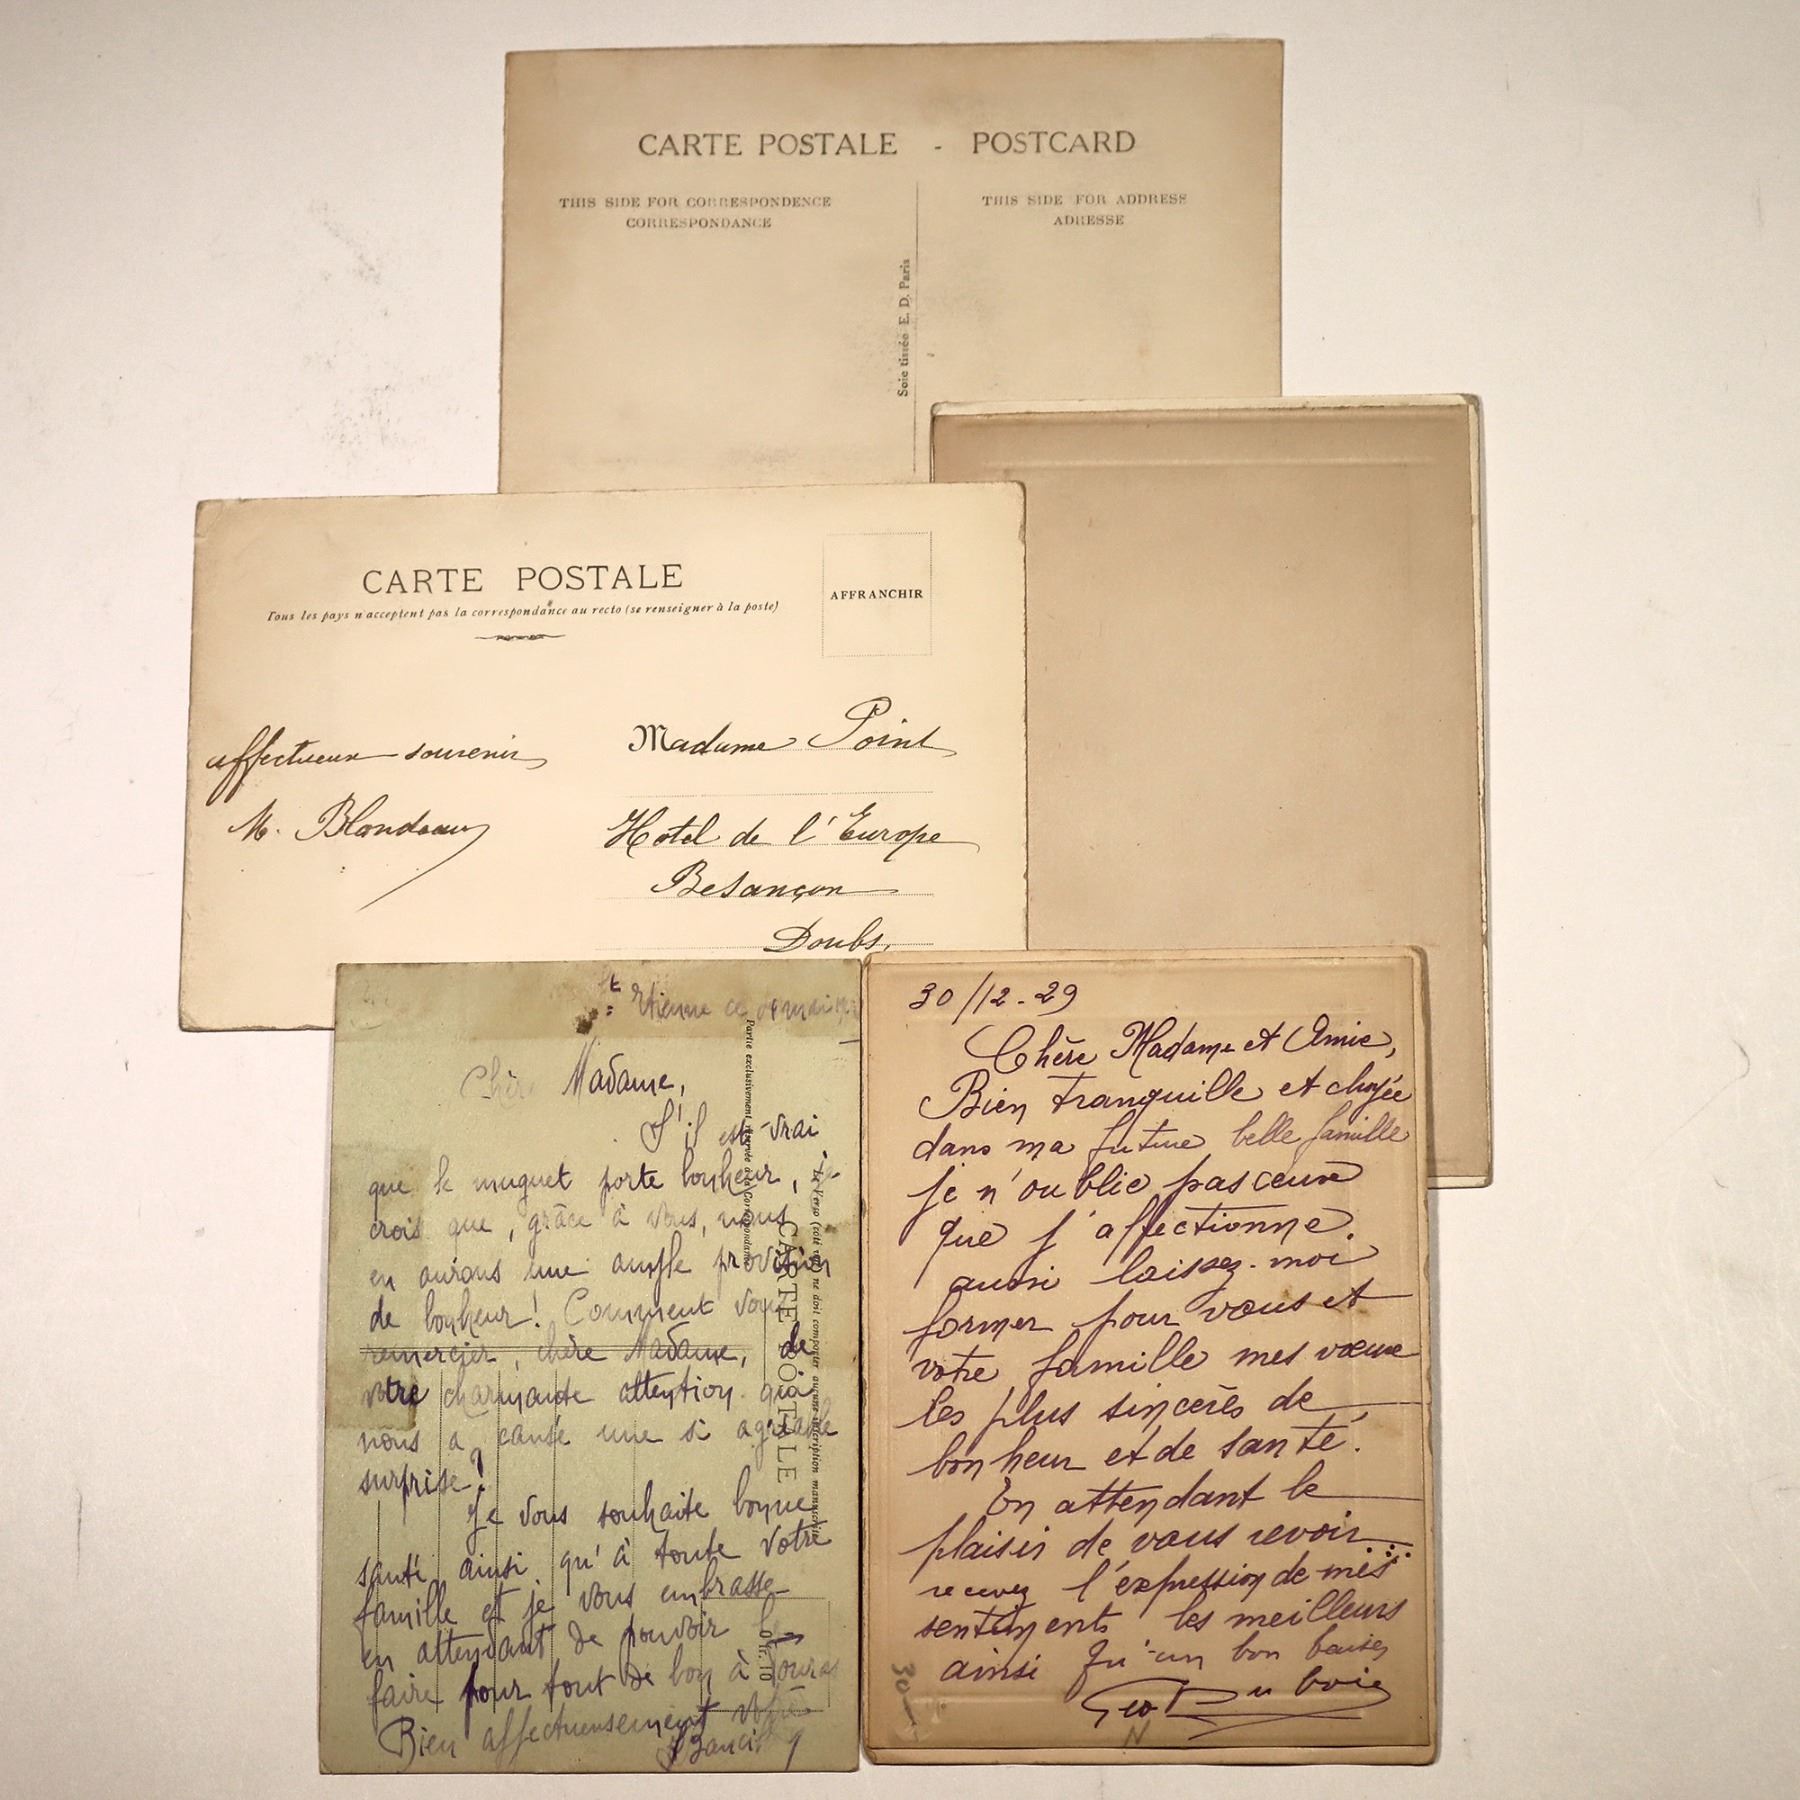 CARTE POSTALE - POSTCARD
THIS SIDE FOR CORRESPONDENCE
CORRESPONDANCE
THIS SIDE FOR ADDRESS
ADRESSE
Soie tissée E. D. Paris
CARTE POSTALE
Tous les pays n'acceptent pas la correspondance au recto (se renseigner à la poste)
AFFRANCHIR
affectueux souvenir
M. Blondeau
Madame Point
Hotel de l'Europe
Besançon
Doubs.
St Etienne ce mai
Chère Madame,
S'il est vrai
que le muguet porte bonheur, je
crois que, grâce à vous, nous
en aurons une ample provision
de bonheur! Comment vous
remercier, chère Madame, de
votre charmante attention qui
nous a causé une si agréable
surprise!
Je vous souhaite bonne
santé ainsi qu'à toute votre
famille et je vous embrasse
en attendant de pouvoir le
faire pour tout de bon à
Bien affectueusement
Partie exclusivement réservée à la Correspondance
CARTE POSTALE
Le Verso (côté vue) ne doit comporter aucune inscription manuscrite
0 fr. 10
30/12-29
Chère Madame et Amie,
Bien tranquille et choyée
dans ma future belle famille
je n'oublie pas ceux
que j'affectionne.
aussi laissez-moi
former pour vous et
votre famille mes vœux
les plus sincères de
bonheur et de santé.
En attendant le
plaisir de vous revoir...
recevez l'expression de mes
sentiments les meilleurs
ainsi qu'un bon baiser
Geo Dubois
30
N